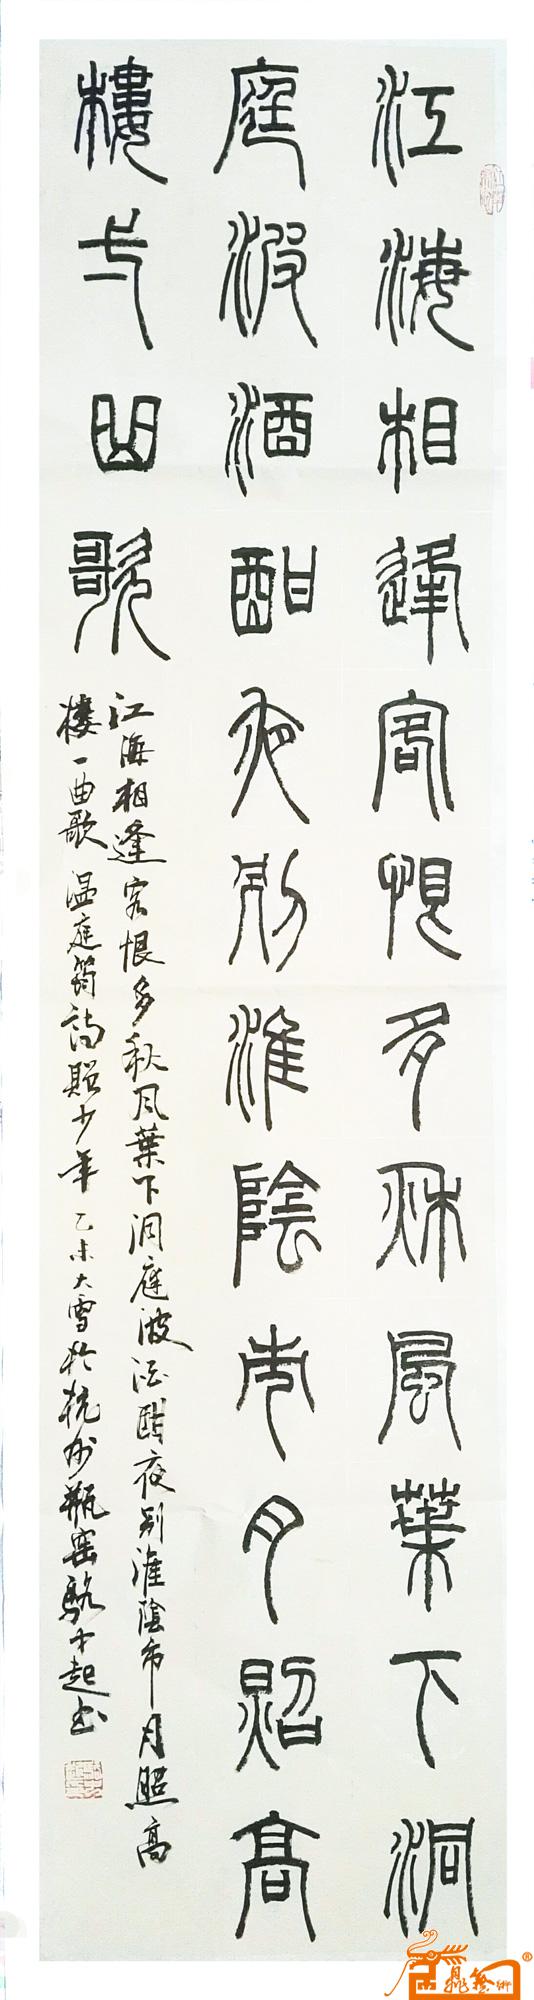 江海相逢客恨多秋風葉下洞
庭波酒酣夜別淮陰市月照高
樓弌曲歌
江海相逢客恨多秋風葉下洞庭波酒酣夜別淮陰市月照高
樓一曲歌 温庭筠詩贈少年 乙未大雪於杭州瓶窑駱中起书